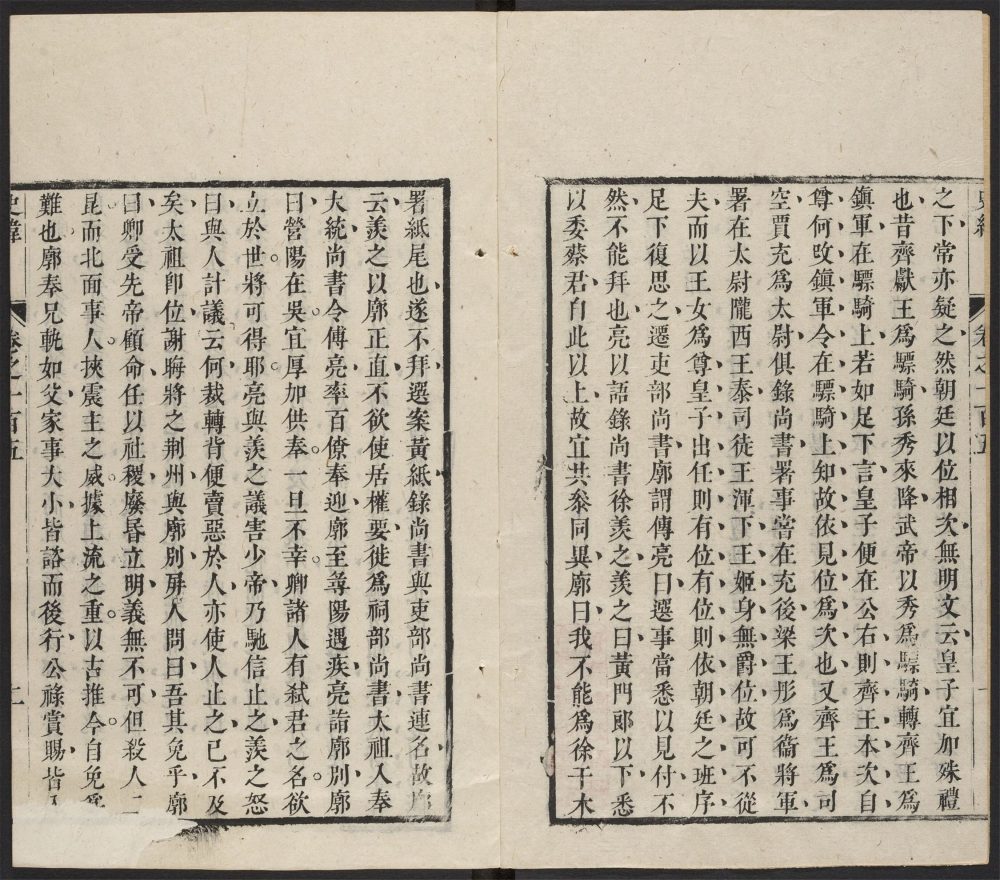 史緯
卷之一百五
之下常亦疑之然朝廷以位相次無明文云皇子宜加殊禮
也昔齊獻王爲驃騎孫秀來降武帝以秀爲驃騎轉齊王爲
鎭軍在驃騎上若如足下言皇子便在公右則齊王本次自
尊何改鎭軍令在驃騎上知故依見位爲次也又齊王爲司
空賈充爲太尉俱錄尚書署事常在充後梁王彤爲衞將軍
署在太尉隴西王泰司徒王渾下王姬身無爵位故可不從
夫而以王女爲尊皇子出任則有位有位則依朝廷之班序
足下復思之遷吏部尚書廓謂傅亮曰選事當悉以見付不
然不能拜也亮以語錄尚書徐羨之羨之曰黃門郞以下悉
以委蔡君自此以上故宜共參同異廓曰我不能爲徐干木
署紙尾也遂不拜選案黃紙錄尚書與吏部尚書連名故廓
云羨之以廓正直不欲使居權要徙爲祠部尚書太祖入奉
大統尚書令傅亮率百僚奉迎廓至尋陽遇疾亮詣廓別廓
曰營陽在吳宜厚加供奉一旦不幸卿諸人有弑君之名欲
立於世將可得耶亮與羨之議害少帝乃馳信止之羨之怒
曰與人計議云何裁轉背便賣惡於人亦使人止之已不及
矣太祖卽位謝晦將之荆州與廓別屛人問曰吾其免乎廓
曰卿受先帝顧命任以社稷廢昬立明義無不可但殺人二
昆而北面事人挾震主之威據上流之重以古推今自免爲
難也廓奉兄軌如父家事大小皆諮而後行公祿賞賜皆
史緯
卷之一百五
二